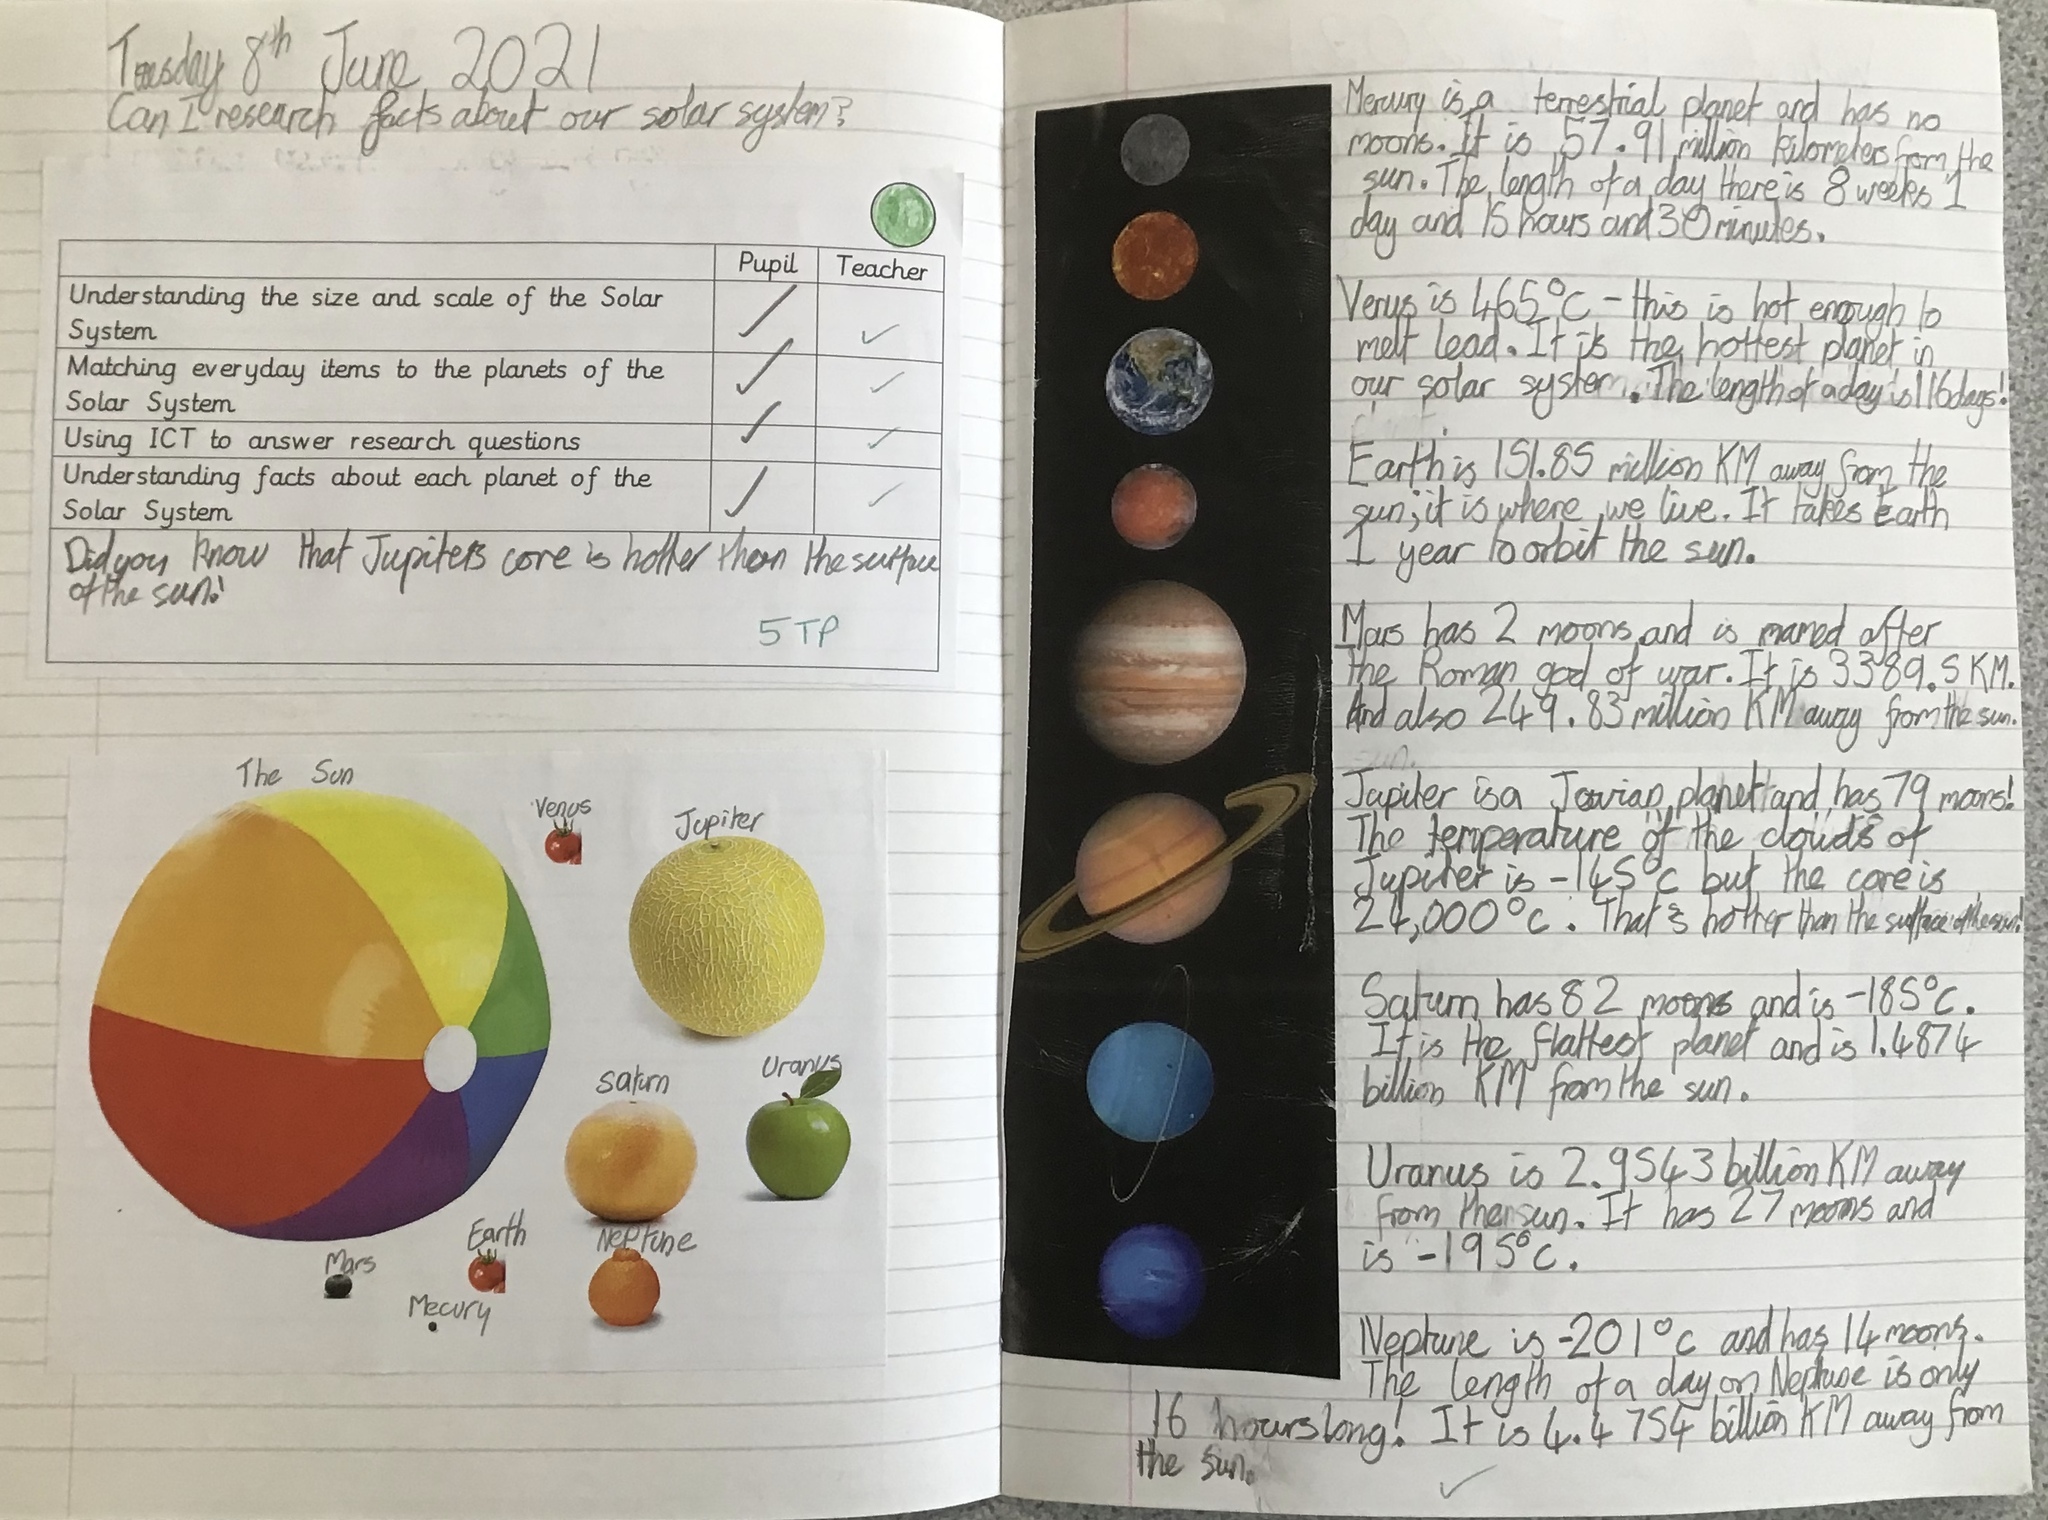 Tuesday 8th June 2021
Can I research facts about our solar system?
Pupil Teacher
Understanding the size and scale of the Solar
System
Matching everyday items to the planets of the
Solar System
Using ICT to answer research questions
Understanding facts about each planet of the
Solar System
Did you know that Jupiters core is hotter then the surface
of the sun!
5 TP
The Sun
Venus
Jupiter
Saturn
Uranus
Earth
Neptune
Mars
Mecury
Mercury is a terrestrial planet and has no
moons. It is 57.91 million kilometers from the
sun. The length of a day there is 8 weeks 1
day and 15 hours and 30 minutes.
Venus is 465°c - this is hot enough to
melt lead. It is the hottest planet in
our solar system. The length of a day is 116 days!
Earth is 151.85 million KM away from the
sun; it is where we live. It takes earth
1 year to orbit the sun.
Mars has 2 moons and is named after
the Roman god of war. It is 3389.5 KM.
And also 249.83 million KM away from the sun.
Jupiter is a Jovian planet and has 79 moons!
The temperature of the clouds of
Jupiter is -145°c but the core is
24,000°c. That's hotter than the surface of the sun!
Saturn has 82 moons and is -185°c.
It is the flattest planet and is 1.4874
billion KM from the sun.
Uranus is 2.9543 billion KM away
from the sun. It has 27 moons and
is -195°c.
Neptune is -201°c and has 14 moons.
The length of a day on Neptune is only
16 hours long! It is 4.4754 billion KM away from
the sun.